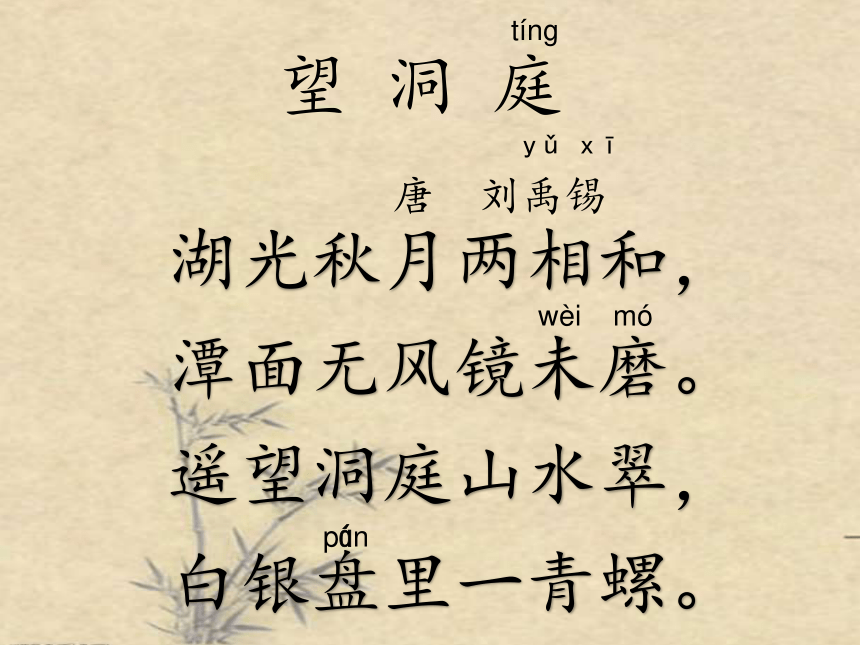 tíng
望 洞 庭
yǔ xī
唐 刘禹锡
湖光秋月两相和，
wèi mó
潭面无风镜未磨。
遥望洞庭山水翠，
pán
白银盘里一青螺。